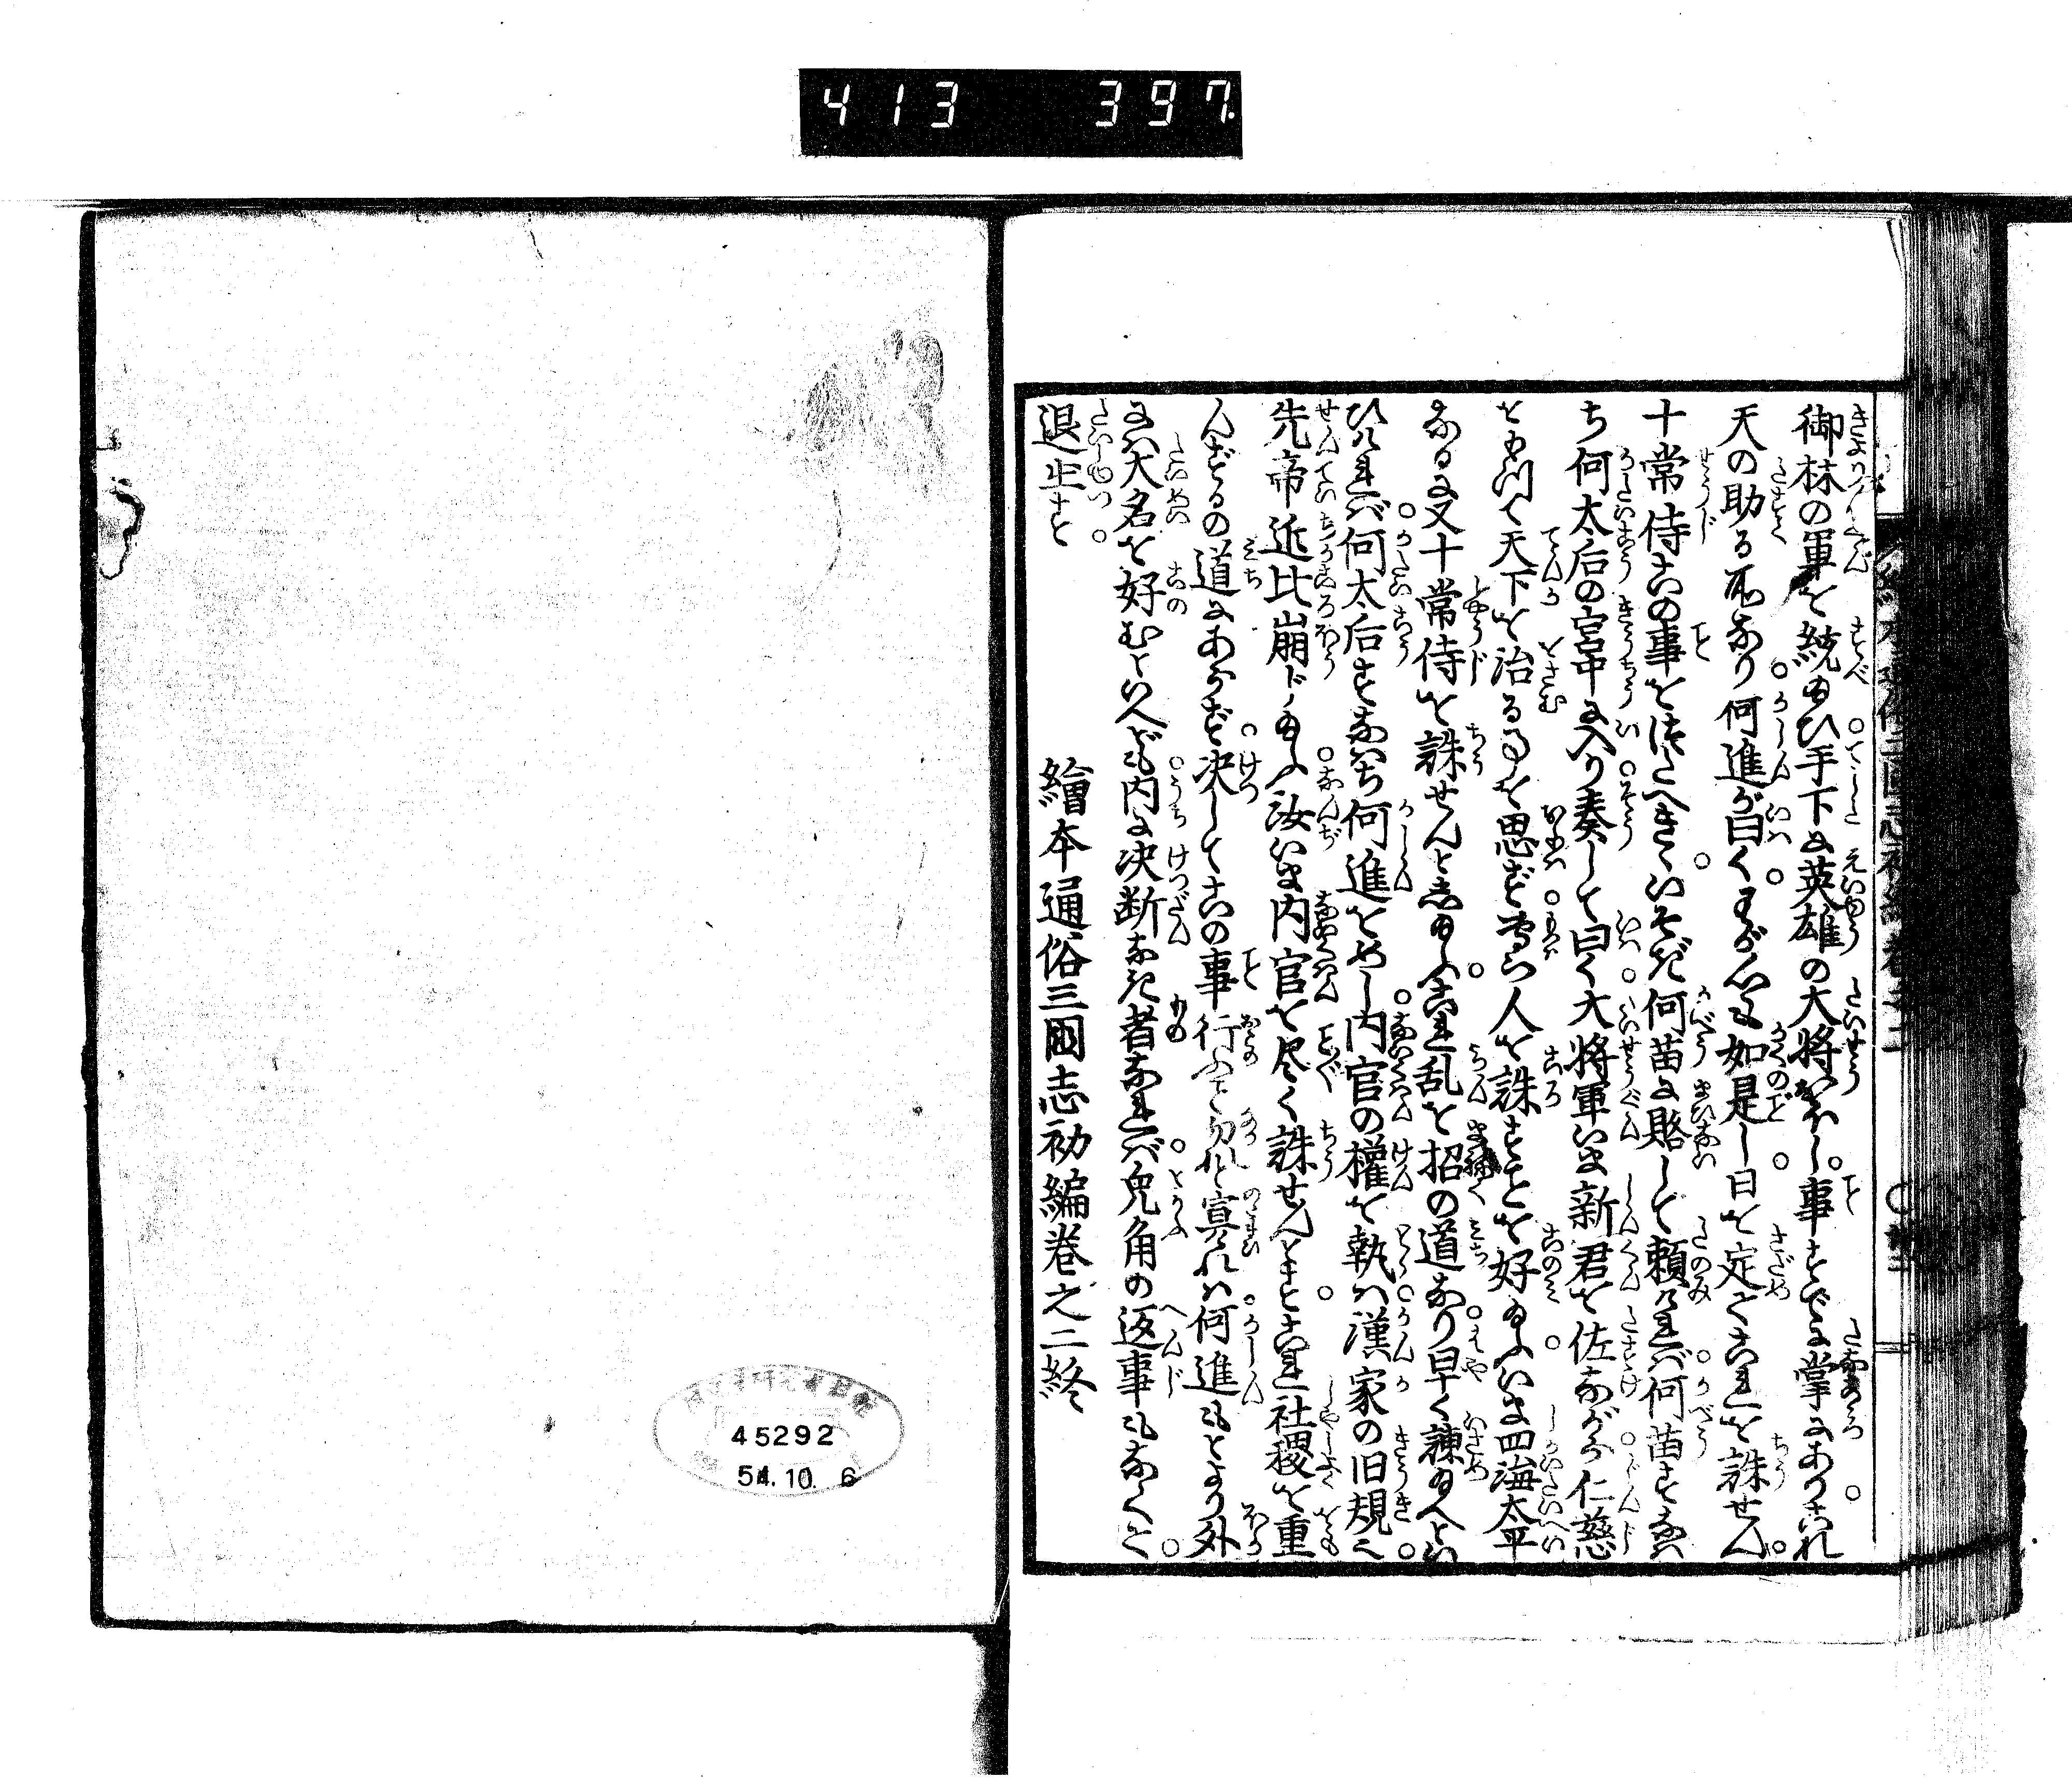 413 397.
御林の軍を統給ひ手下に英雄の大将おほし事すでに掌にありこれ
天の助る所なり何進が曰くわが心も如是し日を定てこれを誅せん
十常侍この事をつたへきゝいそぎ何苗に賂して頼ければ何苗すなは
ち何太后の宮中に入り奏して曰く大将軍いま新君を佐ながら仁慈
をもつて天下を治る事を思ず専ら人を誅すことを好給ふいま四海太平
なるに又十常侍を誅せんとし給ふこれ乱を招の道なり早く諫給へとい
ひければ何太后すなはち何進をめし内官の權を執は漢家の旧規也
先帝近比崩じ給ふ汝いま内官を尽く誅せんとすこれ社稷を重
んずるの道にあらず決してこの事行ふこと勿れと宣れは何進もとより外
には大名を好むといへども内に决断なき者なれば兎角の返事もなくて
退出す
繪本通俗三國志初編巻之二終
45292
54.10.6